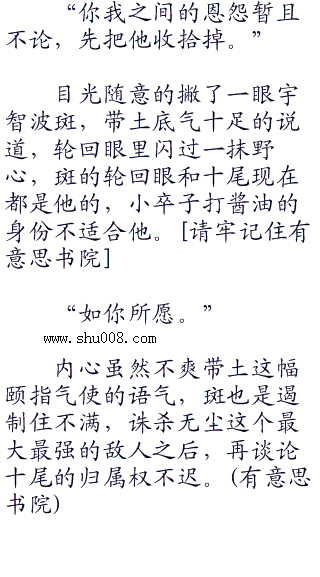 “你我之间的恩怨暂且
不论，先把他收拾掉。”
目光随意的撇了一眼宇
智波斑，带土底气十足的说
道，轮回眼里闪过一抹野
心，斑的轮回眼和十尾现在
都是他的，小卒子打酱油的
身份不适合他。[请牢记住有
意思书院]
“如你所愿。”
www.shu008.com
内心虽然不爽带土这幅
颐指气使的语气，斑也是遏
制住不满，诛杀无尘这个最
大最强的敌人之后，再谈论
十尾的归属权不迟。(有意思
书院)